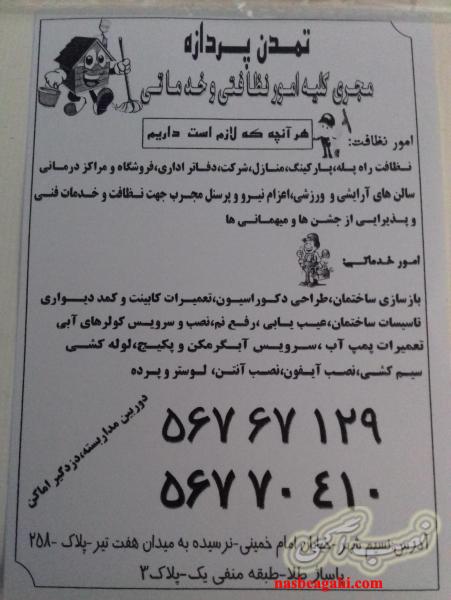 تمدن پردازه
مجری کلیه امور نظافتی و خدماتی
هر آنچه که لازم است داریم
امور نظافت:
نظافت راه پله،پارکینگ،منازل،شرکت،دفاتر اداری،فروشگاه و مراکز درمانی
سالن های آرایشی و ورزشی،اعزام نیرو و پرسنل مجرب جهت نظافت و خدمات فنی
و پذیرایی از جشن ها و میهمانی ها
امور خدماتی:
بازسازی ساختمان،طراحی دکوراسیون،تعمیرات کابینت و کمد دیواری
تاسیسات ساختمان،عیب یابی ،رفع نم،نصب و سرویس کولرهای آبی
تعمیرات پمپ آب ،سرویس آبگرمکن و پکیج،لوله کشی
سیم کشی،نصب آیفون،نصب آنتن، لوستر و پرده
دوربین مداربسته،دزدگیر اماکن
۵۶۷ ۶۷ ۱۲۹
۵۶۷ ۷۰ ۴۱۰
آدرس نسیم شهر-خیابان امام خمینی-نرسیده به میدان هفت تیر-پلاک ۲۵۸-
پاساژ طلا-طبقه منفی یک-پلاک۳
نصب آگهی
nasbeagahi.com